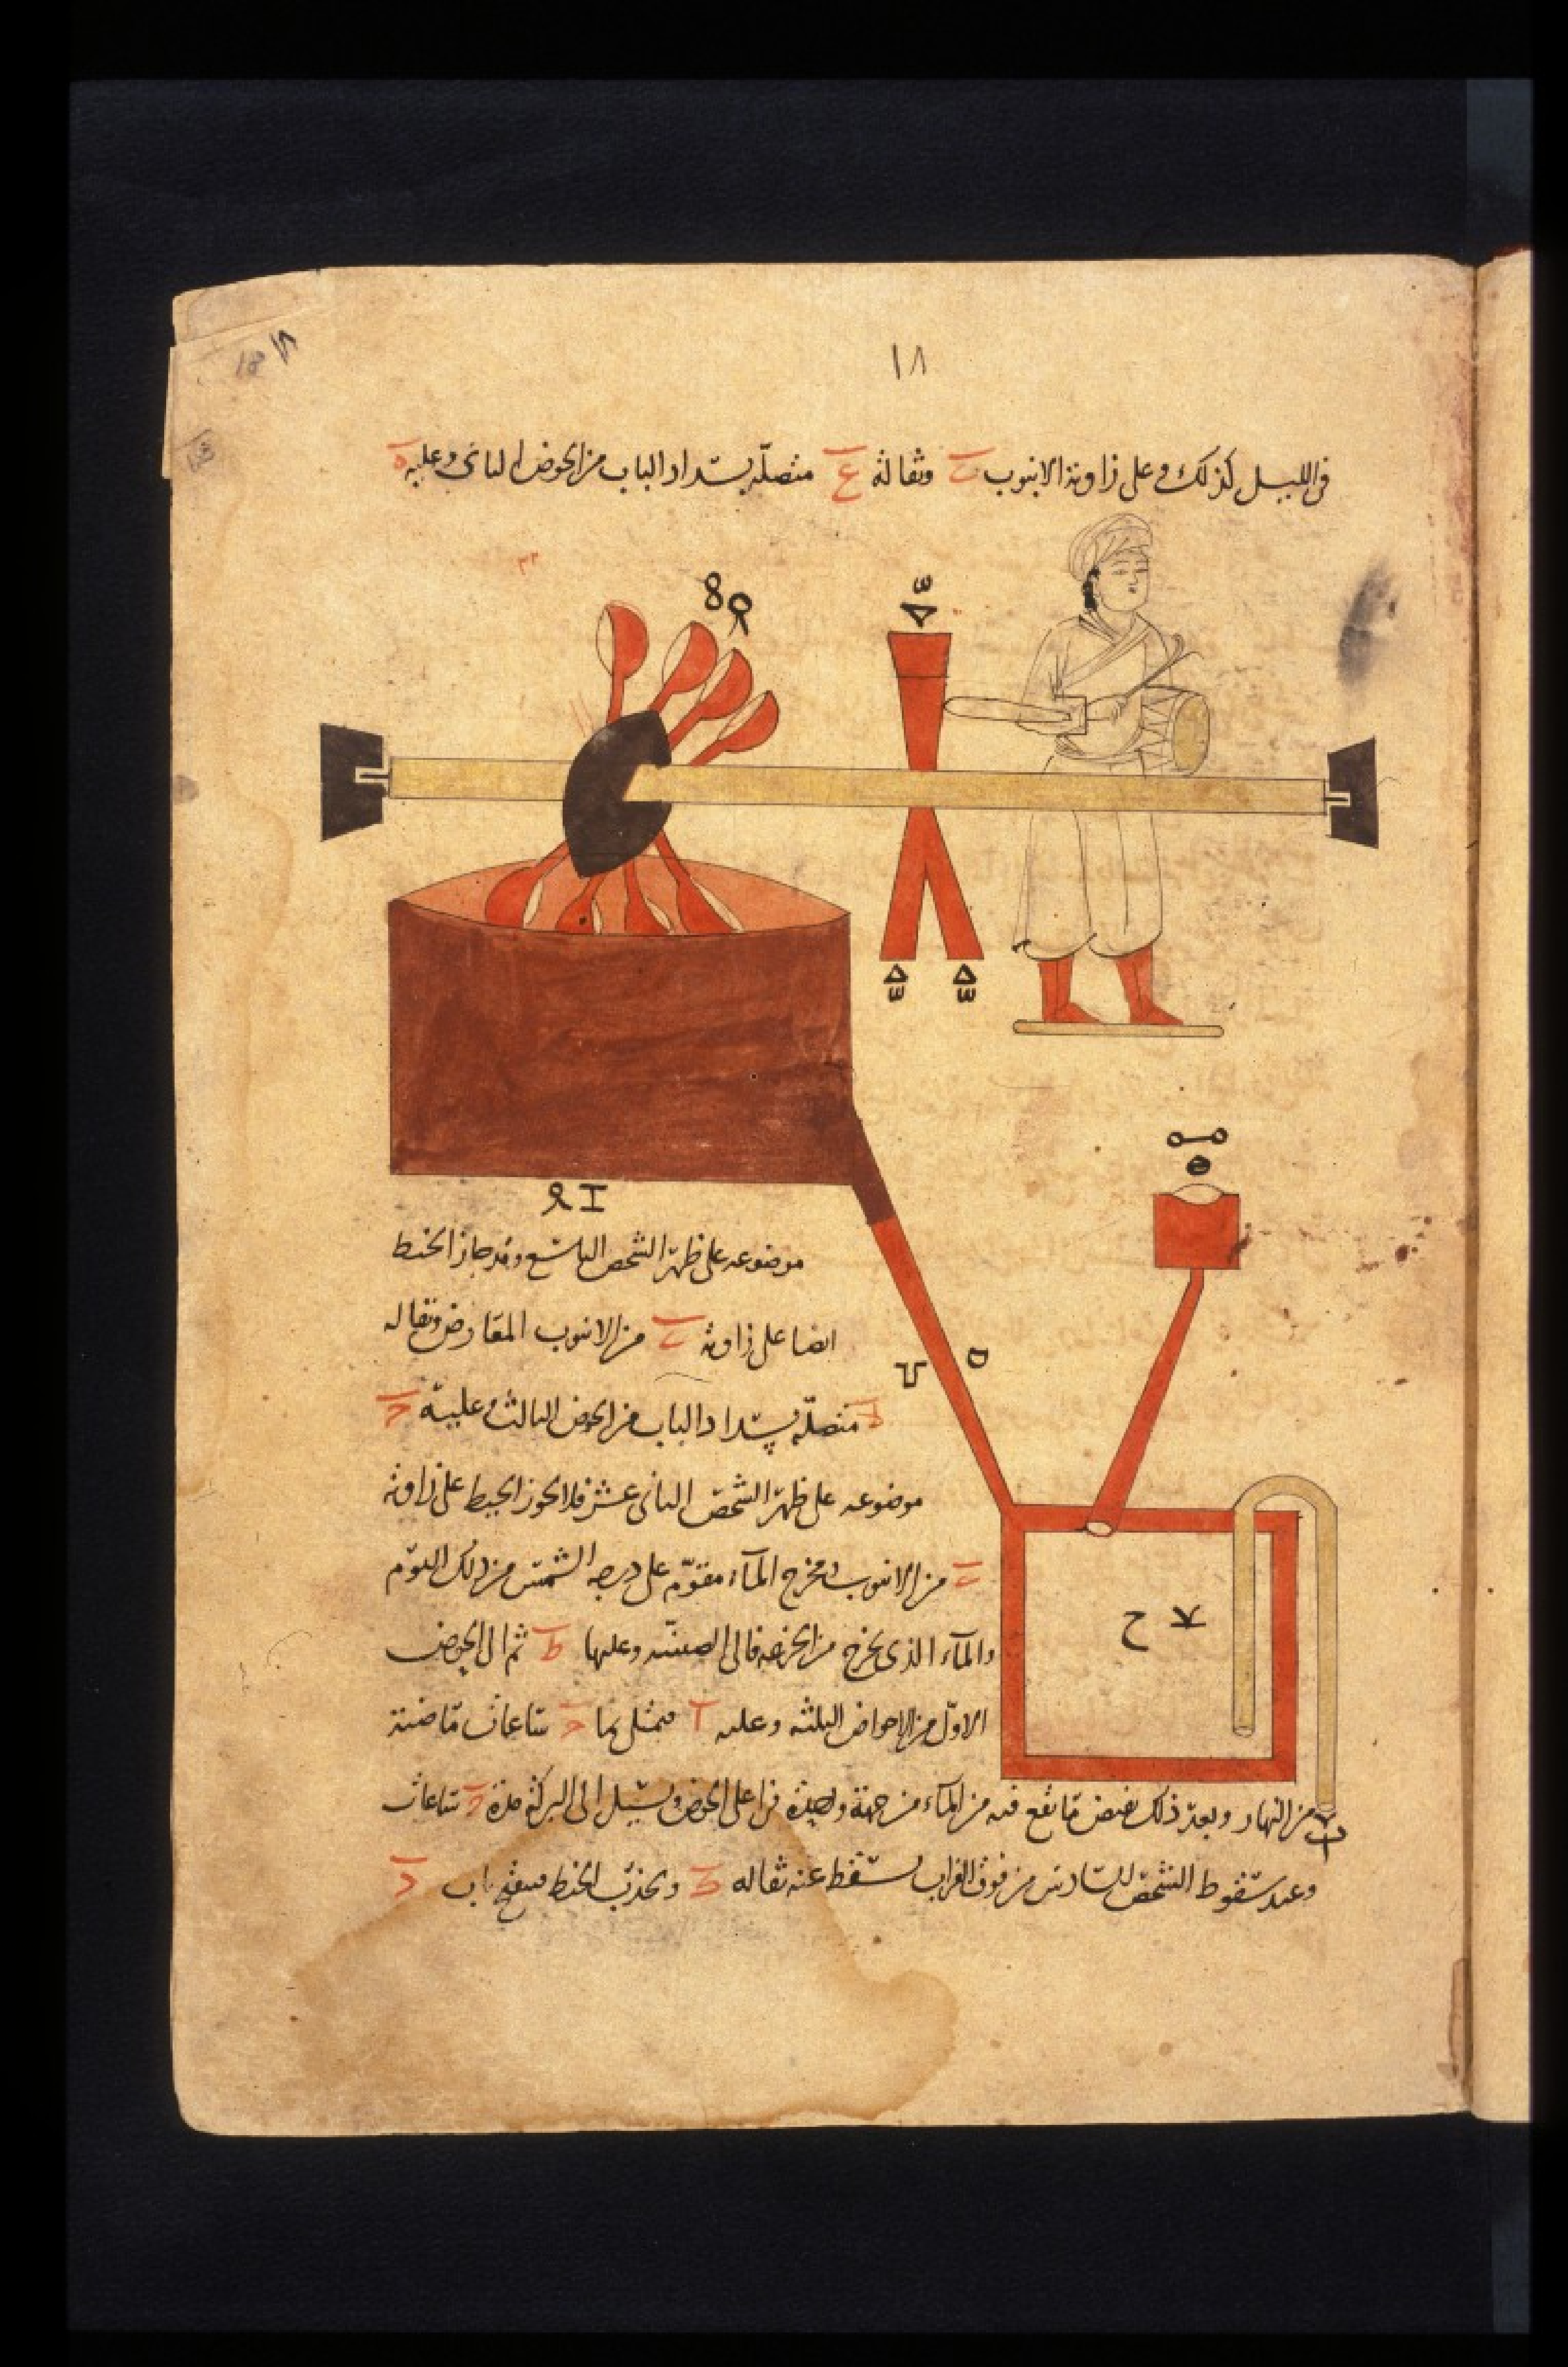 ١٨
18 ١٨
في الليل كذلك وعلى زاوية الانبوب ت وثقالة ع متصلة بسداد الباب من الحوض الثاني وعليه ه
موضوعه على ظهر الشخص التاسع وقد جاز الخيط
ايضا على زاوية ت من الانبوب المقارض وثقاله
متصلة بسداد الباب من الحوض الثالث وعليه
موضوعه على ظهر الشخص الثاني عشر فلا يجوز الخيط على زاوية
ت من الانبوب ومخرج الماء مقوم على درجة الشمس من ذلك اليوم
والماء الذي يخرج من الخزانة فالى وعليها ط ثم الى الحوض
الاول من الاحواض الثلثة وعليه ا فيمتلى بما ساعات ماضية
من النهار وبعد ذلك يفيض ما يقع فيه من الماء من جهة من اعلى الحوض ويسيل الى البركة مدة و ساعات
وعند سقوط الشخص السادس من فوق الغراب تسقط عنه ثقاله ويجذب الخيط فيفتح باب